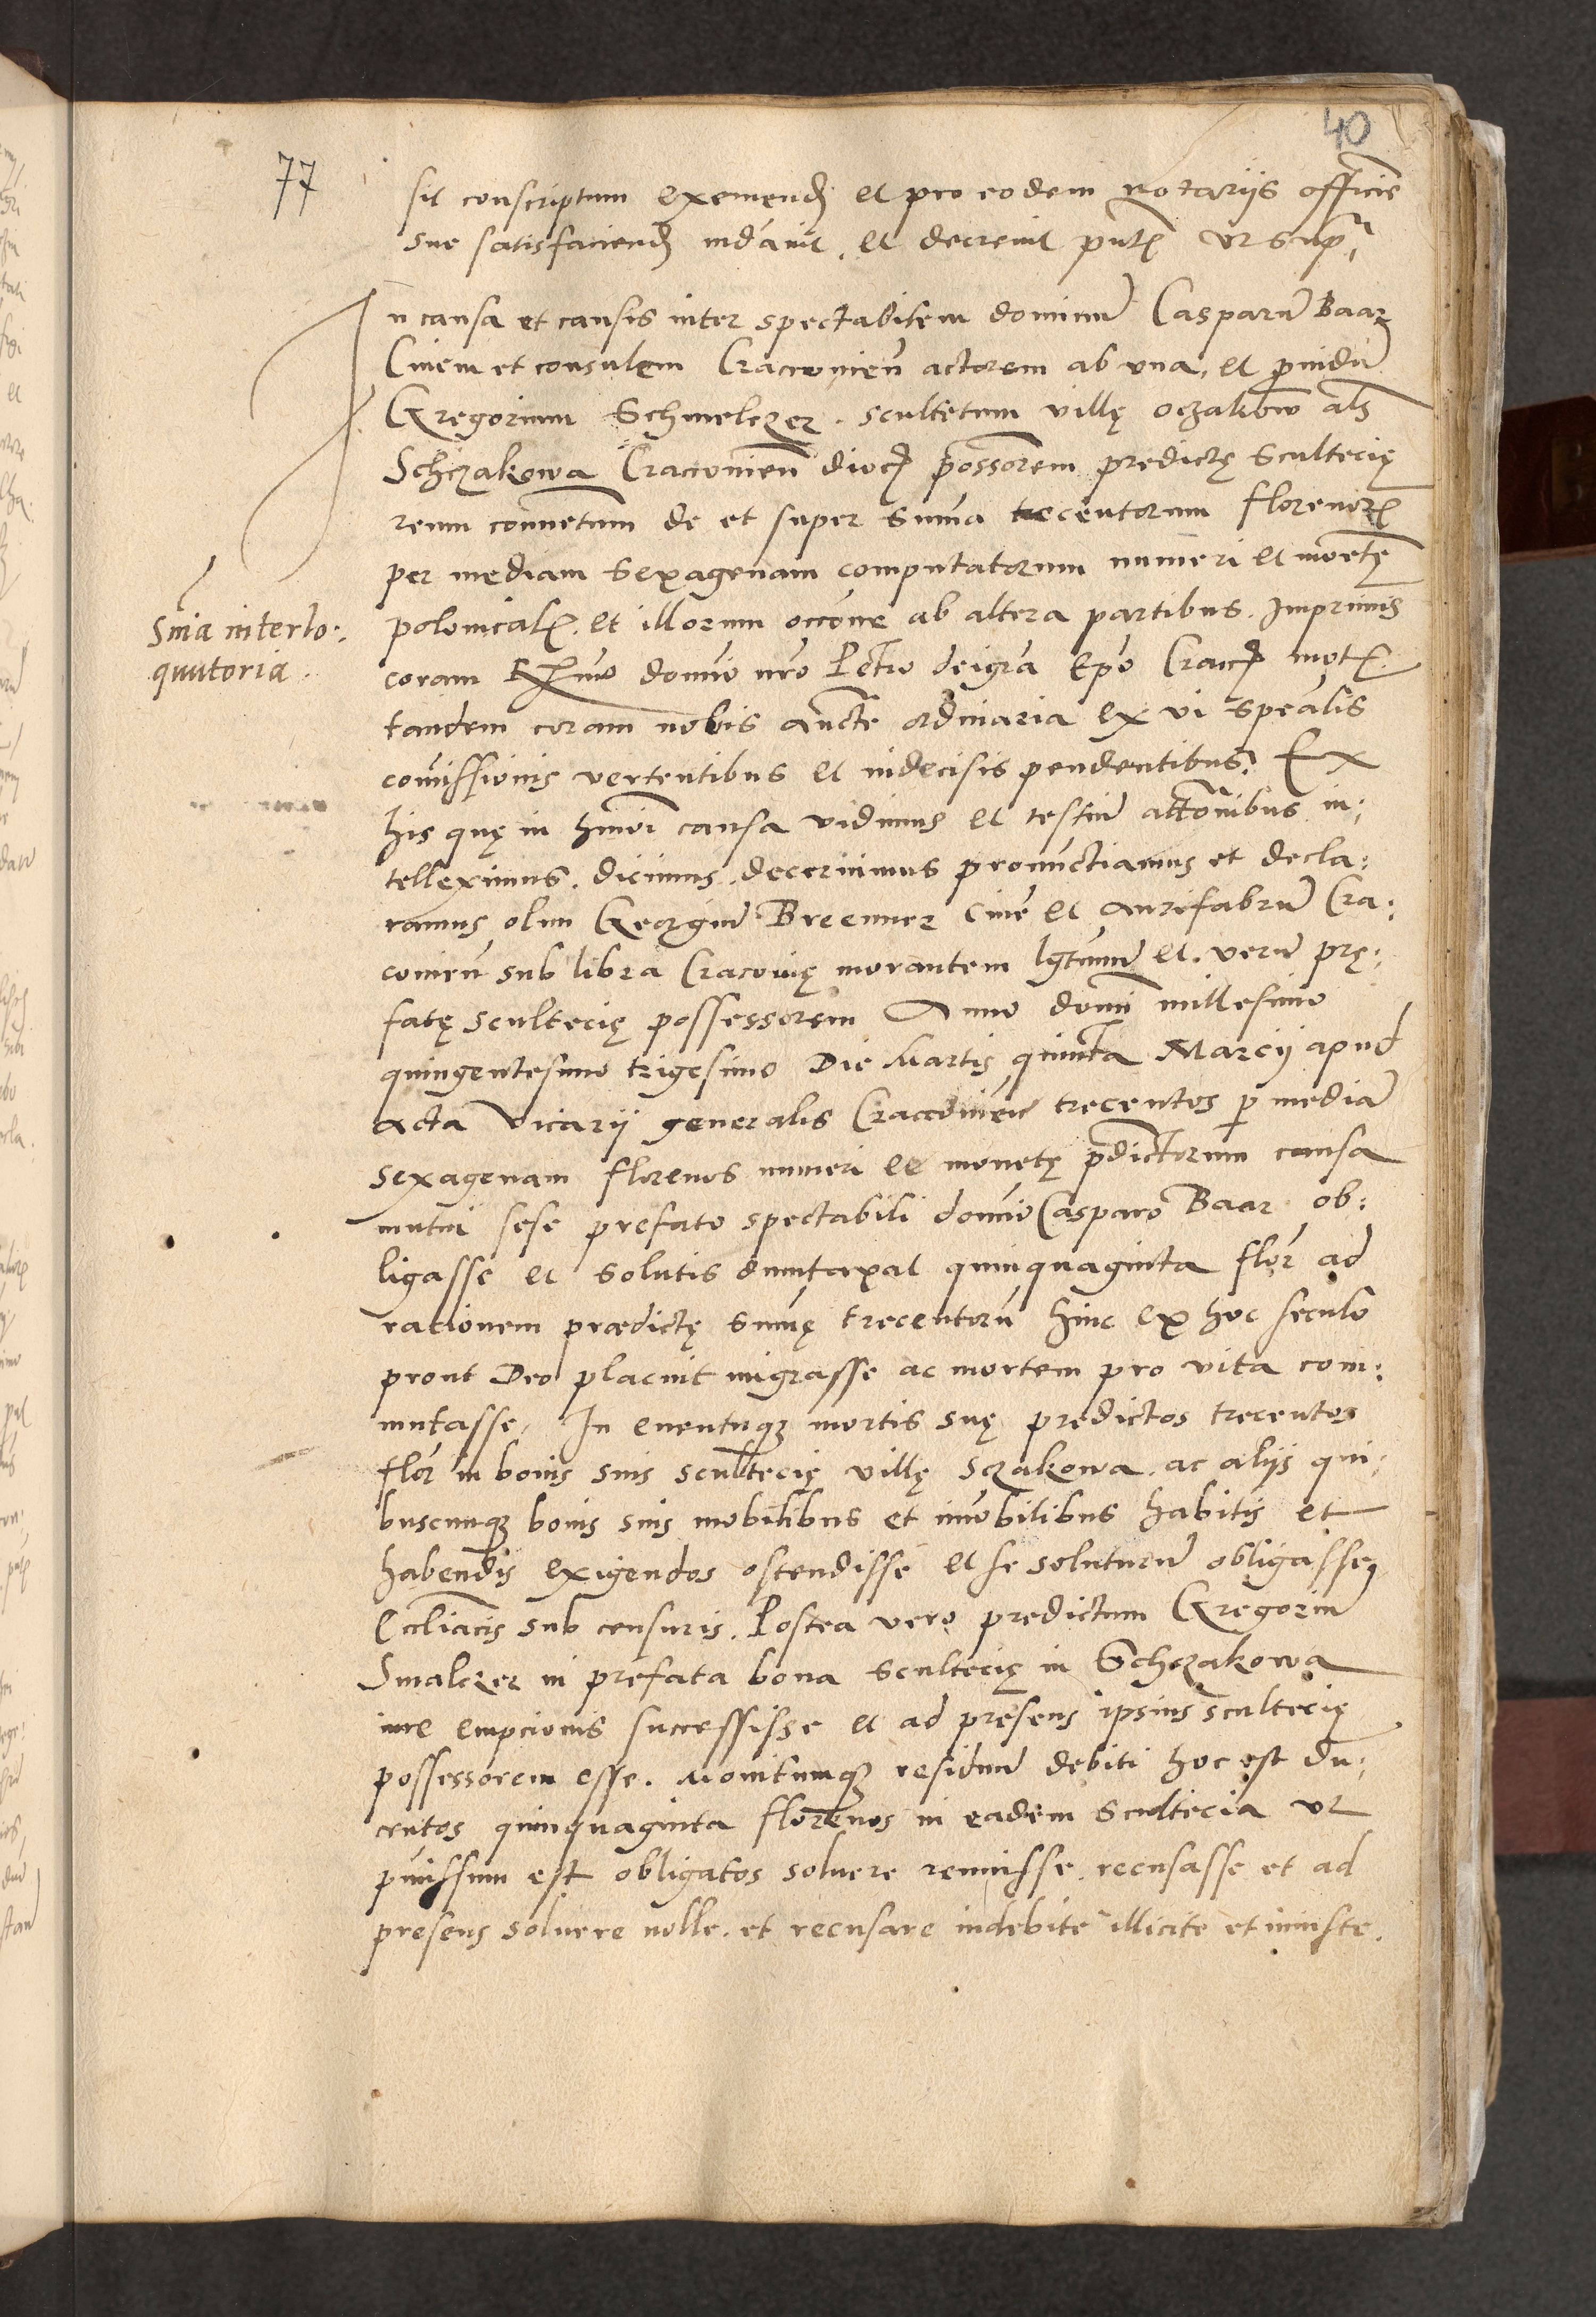 40
77
sit conscriptum exemend et pro eodem notarijs officie
sue satisfaciend mdauit. et decreuit pntᷓ vt sup
In causa et causis inter spectabilem dominū Casparū Baar
Ciuem et consulem Cracouien̄ actorem ab vna, et prouidū
Gregorium Schmelczer. scultetum villę oczakow als
Schczakowa Cracouien̄ dioc possorem predictę scultecię
reum conuentum de et super suma trecentorum florenorꝝ
per mediam sexagenam computatorum numeri et moetę
polonicalꝭ. et illorum occōne ab altera partibus. Imprimis
Snia interlo:
quutoria.
coram Rmo domio nro Petro dei gra Epo Crac mot
tandem coram nobis aucte ordinaria ex vi spealis
comissionis vertentibus et indecisis pendentibus. Ex
his quę in hmoi causa vidimus et testiū attonibus in:
telleximus. dicimus. decernimus pronūctiamus et decla:
ramus olim Georgiū Breenner ciuē et aurifabrū Cra:
couien̄ sub libra Cracouię morantem lgtimū et verū prę:
fatę scultecię possessorem Anno domi millesimo
quingentesimo trigesimo Die Martis quinta Marcij apud
acta Vicarij generalis Cracouien̄ trecentos ꝑ mediā
sexagenam florenos numeri et monetę pdictorum causa
mutui sese prefato spectabili domio Casparo Baar ob:
ligasse et solutis duntaxat quinquaginta flor ad
rationem prædictę sumę trecentorū hinc ex hoc seculo
prout Deo placuit migrasse ac mortem pro vita com:
mutasse, In euentuqꝫ mortis suę predictos trecentos
flor in bonis suis scultecię villę Sczakowa. ac alijs qui:
buscunqꝫ bonis suis mobilibus et imobilibus habitis et
habendis exigendos ostendisse et se soluturū obligasse,
Eccliacis sub censuris. Postea vero predictum Gregoriū
Smalczer in prefata bona scultecię in Schczakowa
iure empcionis successisse et ad presens ipsius scultecię
possessorem esse. Monitumqꝫ residuū debiti hoc est du:
centos quinquaginta florenos in eadem scultecia vt
pmissum est obligatos soluere renuisse. recusasse et ad
presens soluere nolle. et recusare indebite illicite et iniuste.